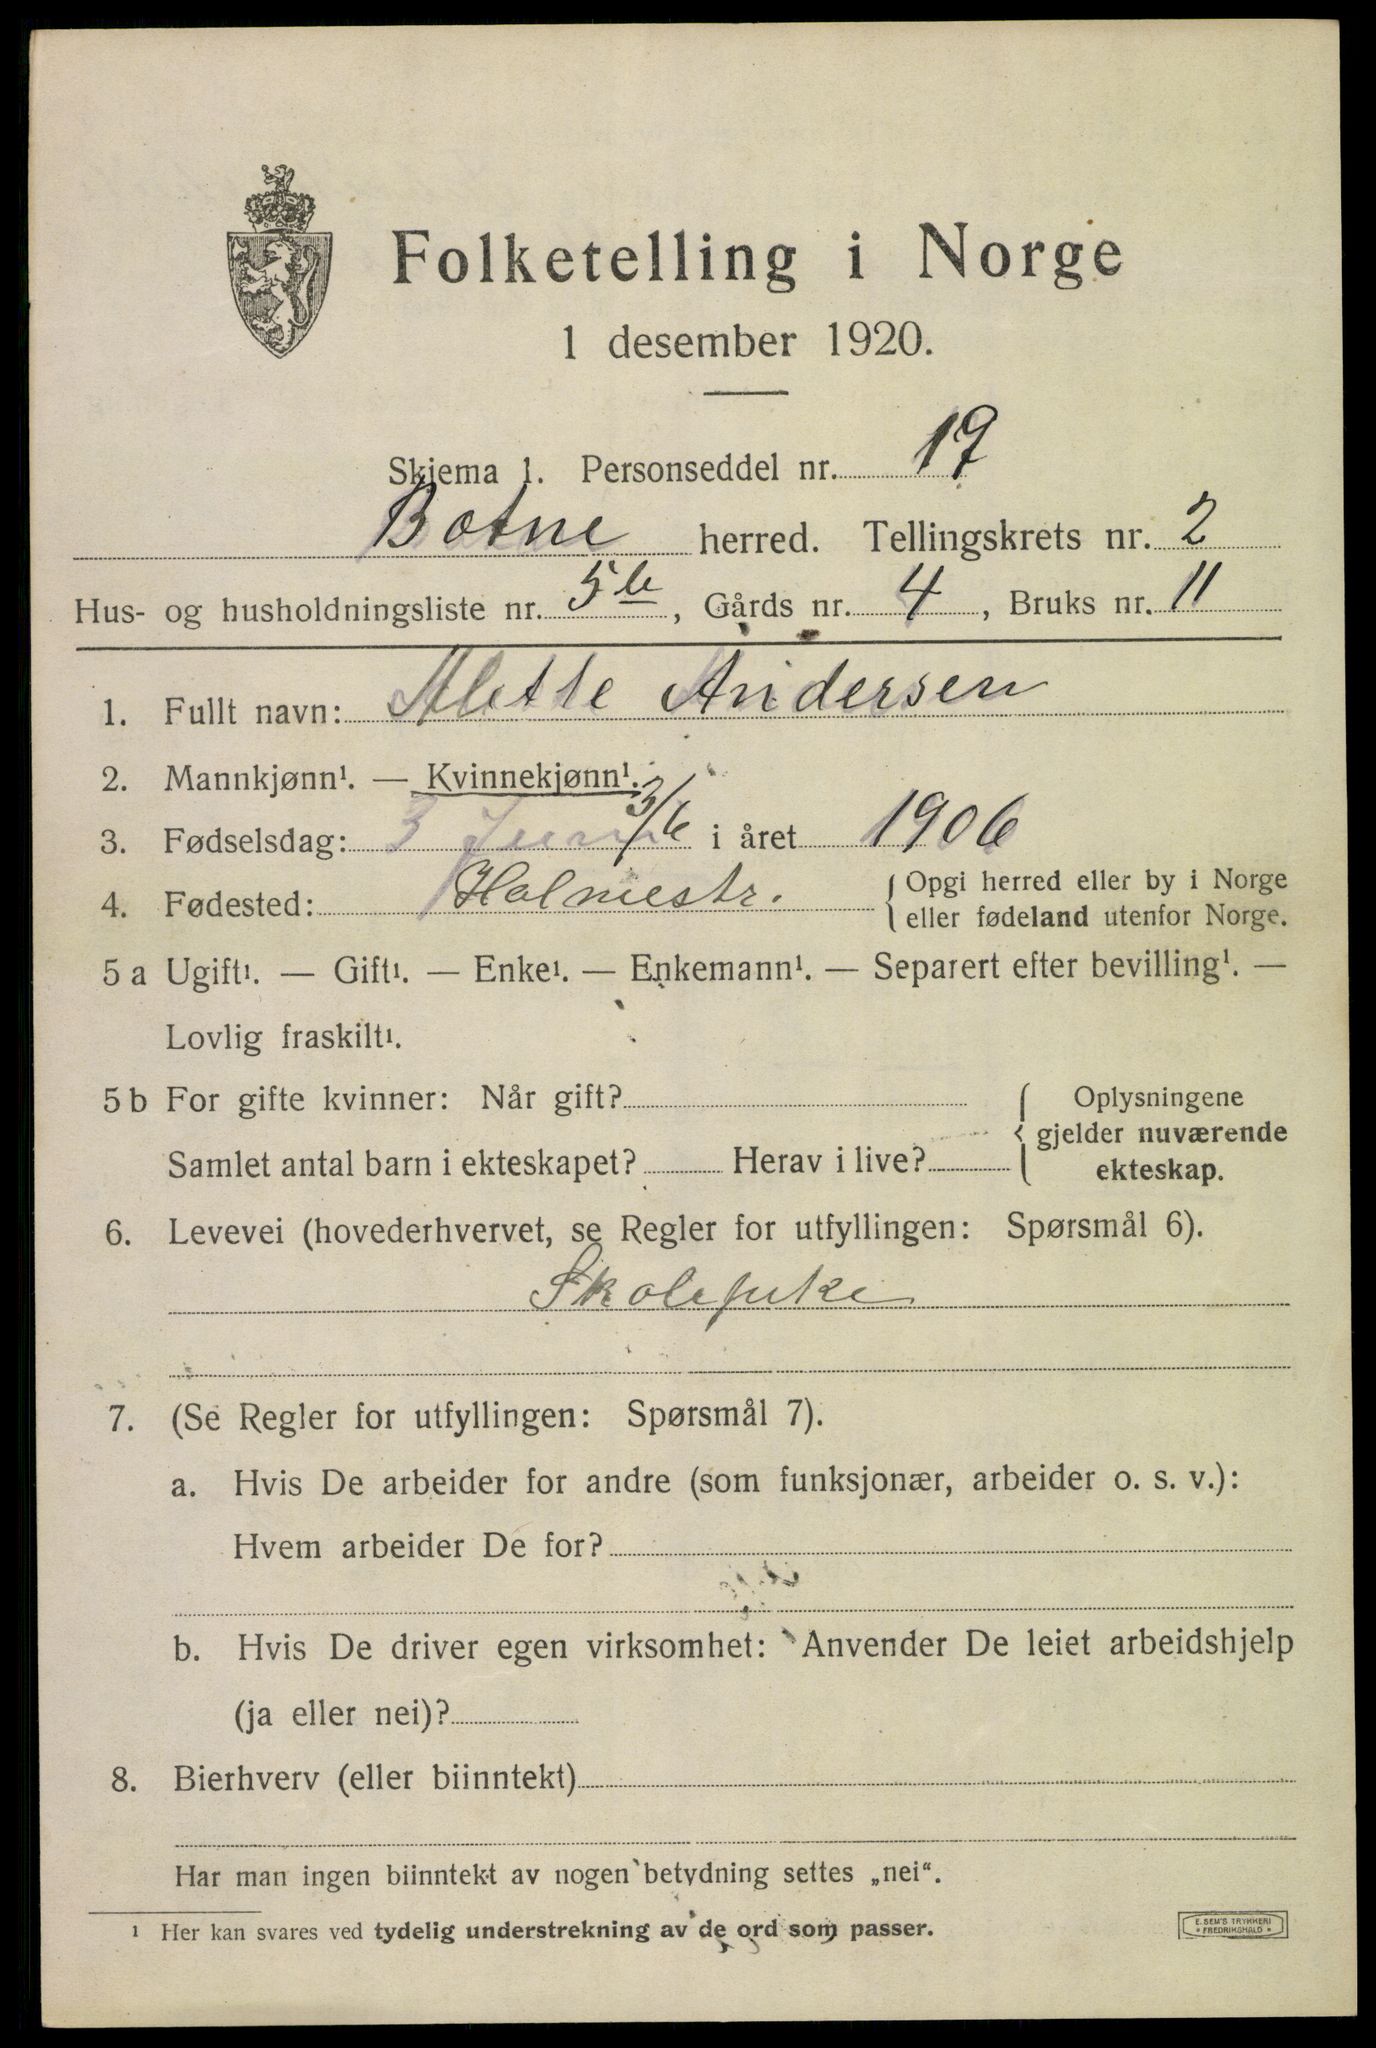 Folketelling i Norge
1 desember 1920.
Skjema 1. Personseddel nr. 19
Botne herred. Tellingskrets nr. 2
Hus- og husholdningsliste nr. 5 b, Gårds nr. 4, Bruks nr. 11
1. Fullt navn: Alette Andersen
2. Mannkjønn¹. — Kvinnekjønn¹.
3. Fødselsdag: 3 Juni 3/6 i året 1906
4. Fødested: Holmestr. { Opgi herred eller by i Norge
eller fødeland utenfor Norge.
5 a Ugift¹. — Gift¹. — Enke¹. — Enkemann¹. — Separert efter bevilling¹. —
Lovlig fraskilt¹.
5 b For gifte kvinner: Når gift? { Oplysningene
gjelder nuværende
Samlet antal barn i ekteskapet? Herav i live? ekteskap.
6. Levevei (hovederhvervet, se Regler for utfyllingen: Spørsmål 6).
Skolepike
7. (Se Regler for utfyllingen: Spørsmål 7).
a. Hvis De arbeider for andre (som funksjonær, arbeider o. s. v.):
Hvem arbeider De for?
b. Hvis De driver egen virksomhet: Anvender De leiet arbeidshjelp
(ja eller nei)?
8. Bierhverv (eller biinntekt)
Har man ingen biinntekt av nogen betydning settes „nei“.
¹ Her kan svares ved tydelig understrekning av de ord som passer.
E. SEM'S TRYKKERI
* FREDRIKSHALD *